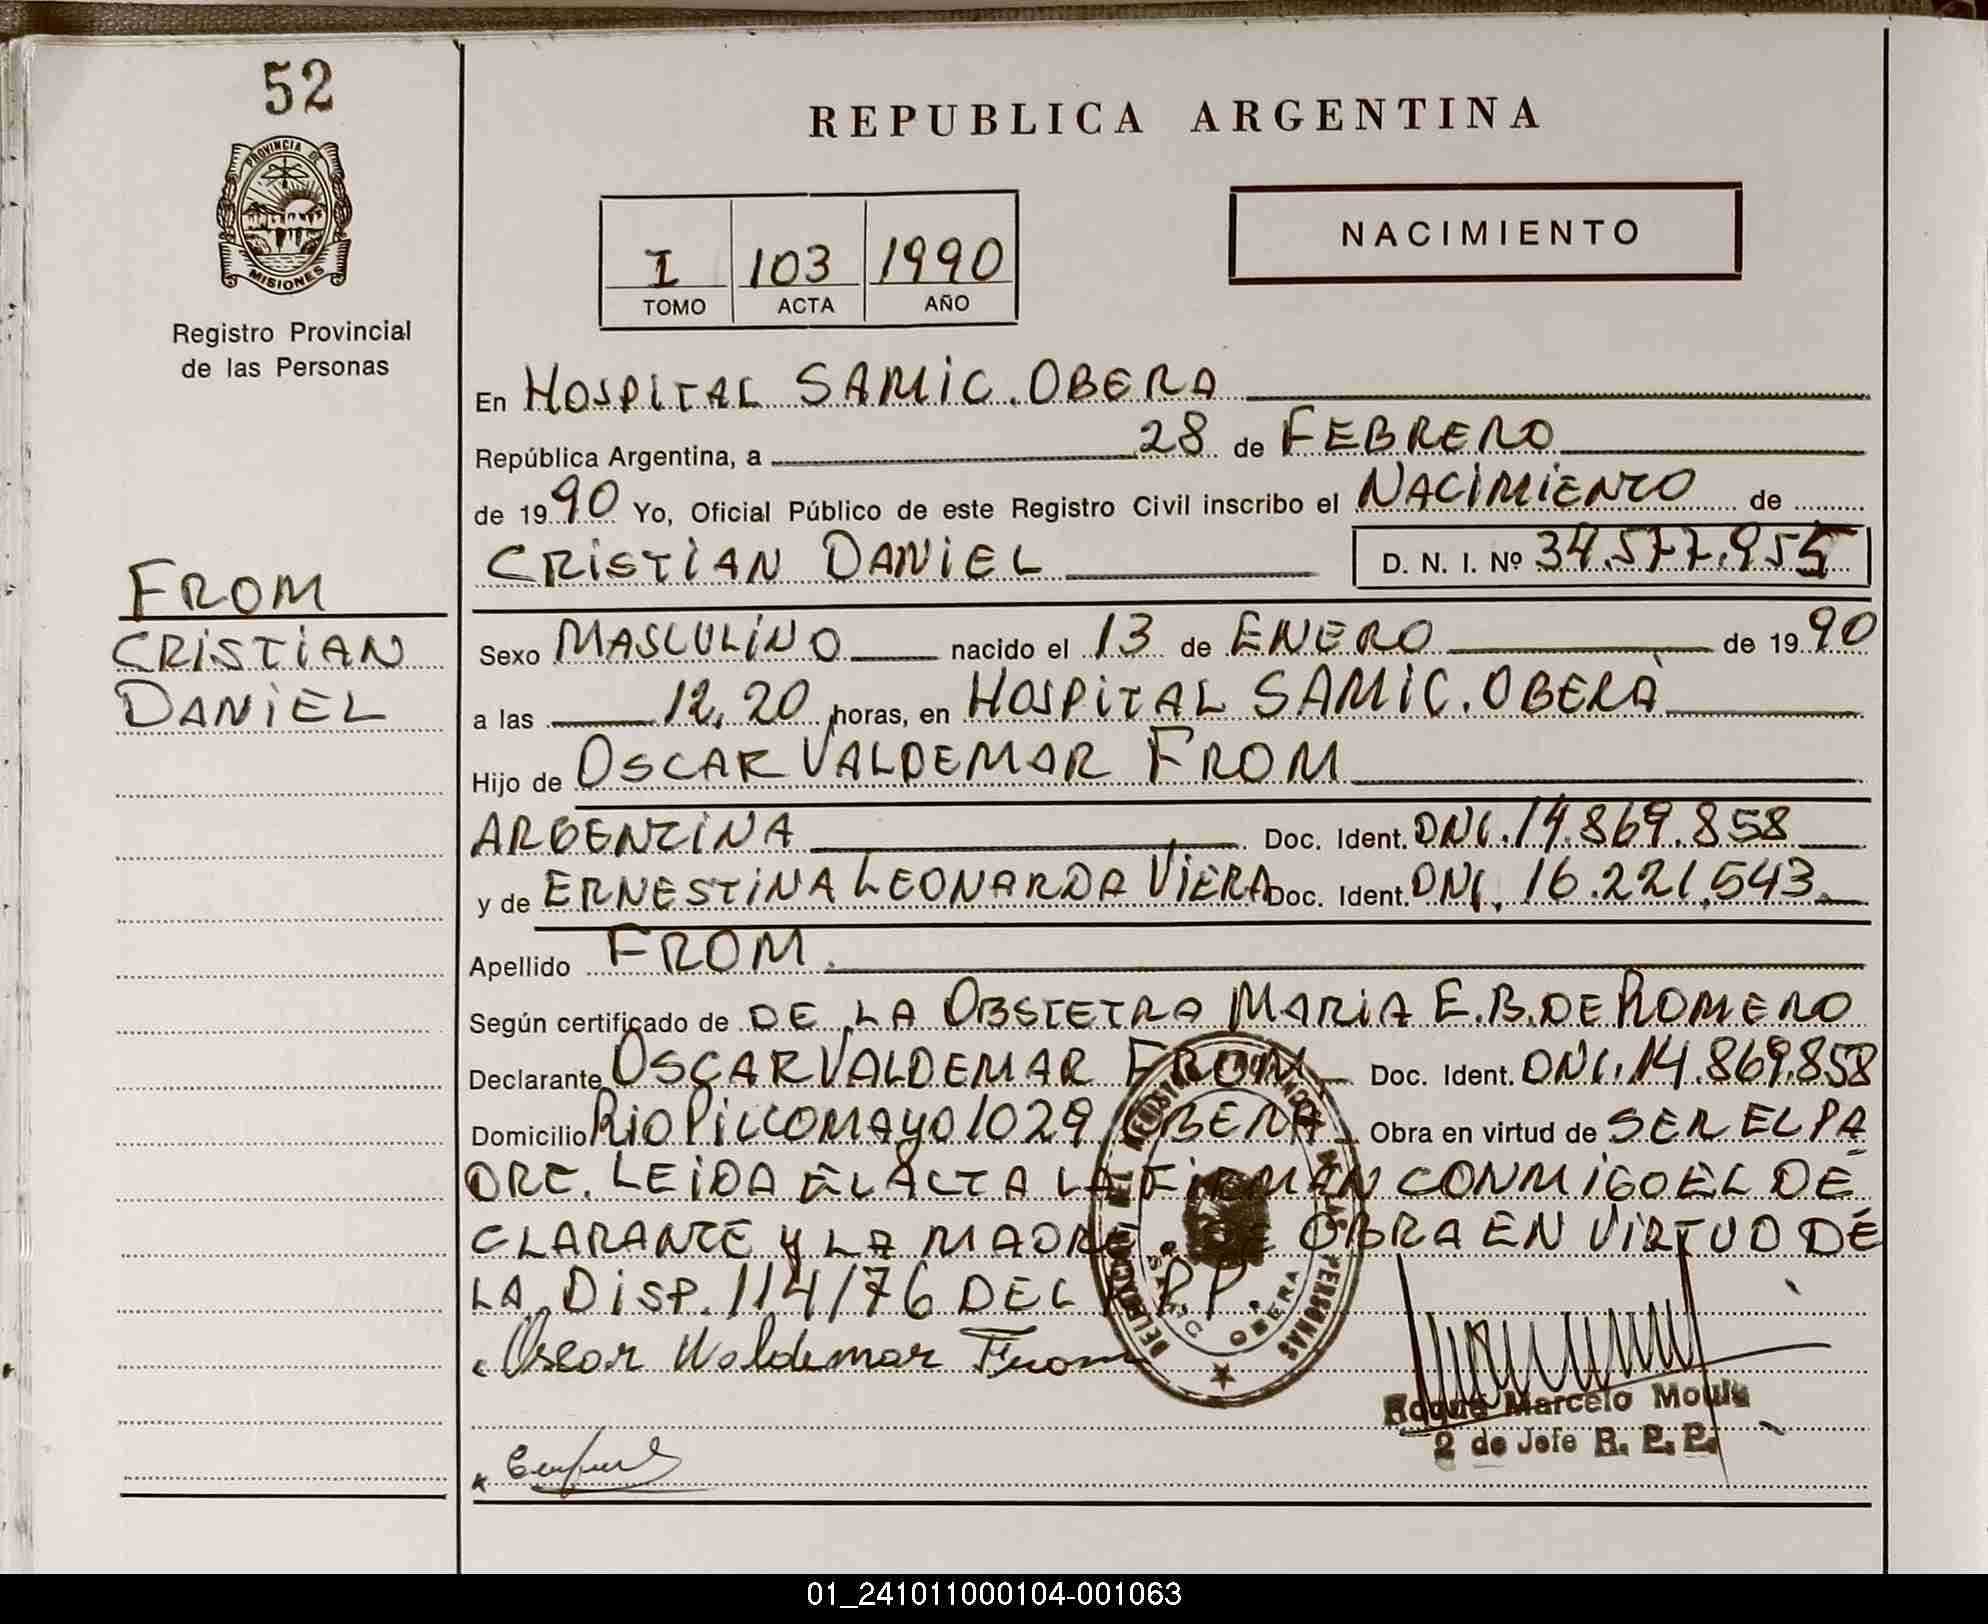 52
PROVINCIA DE
MISIONES
Registro Provincial
de las Personas
FROM
CRISTIAN
DANIEL
REPUBLICA ARGENTINA
NACIMIENTO
I 103 1990
TOMO ACTA AÑO
En HOSPITAL SAMIC. OBERA
República Argentina, a 28 de FEBRERO
de 1990 Yo, Oficial Público de este Registro Civil inscribo el NACIMIENTO de
CRISTIAN DANIEL D. N. I. Nº 34.577.955
Sexo MASCULINO nacido el 13 de ENERO de 1990
a las 12,20 horas, en HOSPITAL SAMIC. OBERA
Hijo de OSCAR VALDEMAR FROM
ARGENTINA Doc. Ident. DNI. 14.869.858
y de ERNESTINA LEONARDA VIERA Doc. Ident. DNI. 16.221.543.
Apellido FROM.
Según certificado de DE LA OBSTETRA MARIA E.B. DE ROMERO
Declarante OSCAR VALDEMAR FROM Doc. Ident. DNI. 14.869.858
Domicilio RIO PILCOMAYO 1029 OBERA Obra en virtud de SER EL PA
DRE. LEIDA EL ACTA LA FIRMAN CONMIGO EL DE
CLARANTE Y LA MADRE. SE OBRA EN VIRTUD DE
LA DISP. 114/76 DEL R.P.P.
Oscar Waldemar From
DELEGACION DEL REGISTRO PROVINCIAL DE LAS PERSONAS
SAMIC OBERA
Roque Marcelo
2 do Jefe R. P. P.
01_241011000104-001063